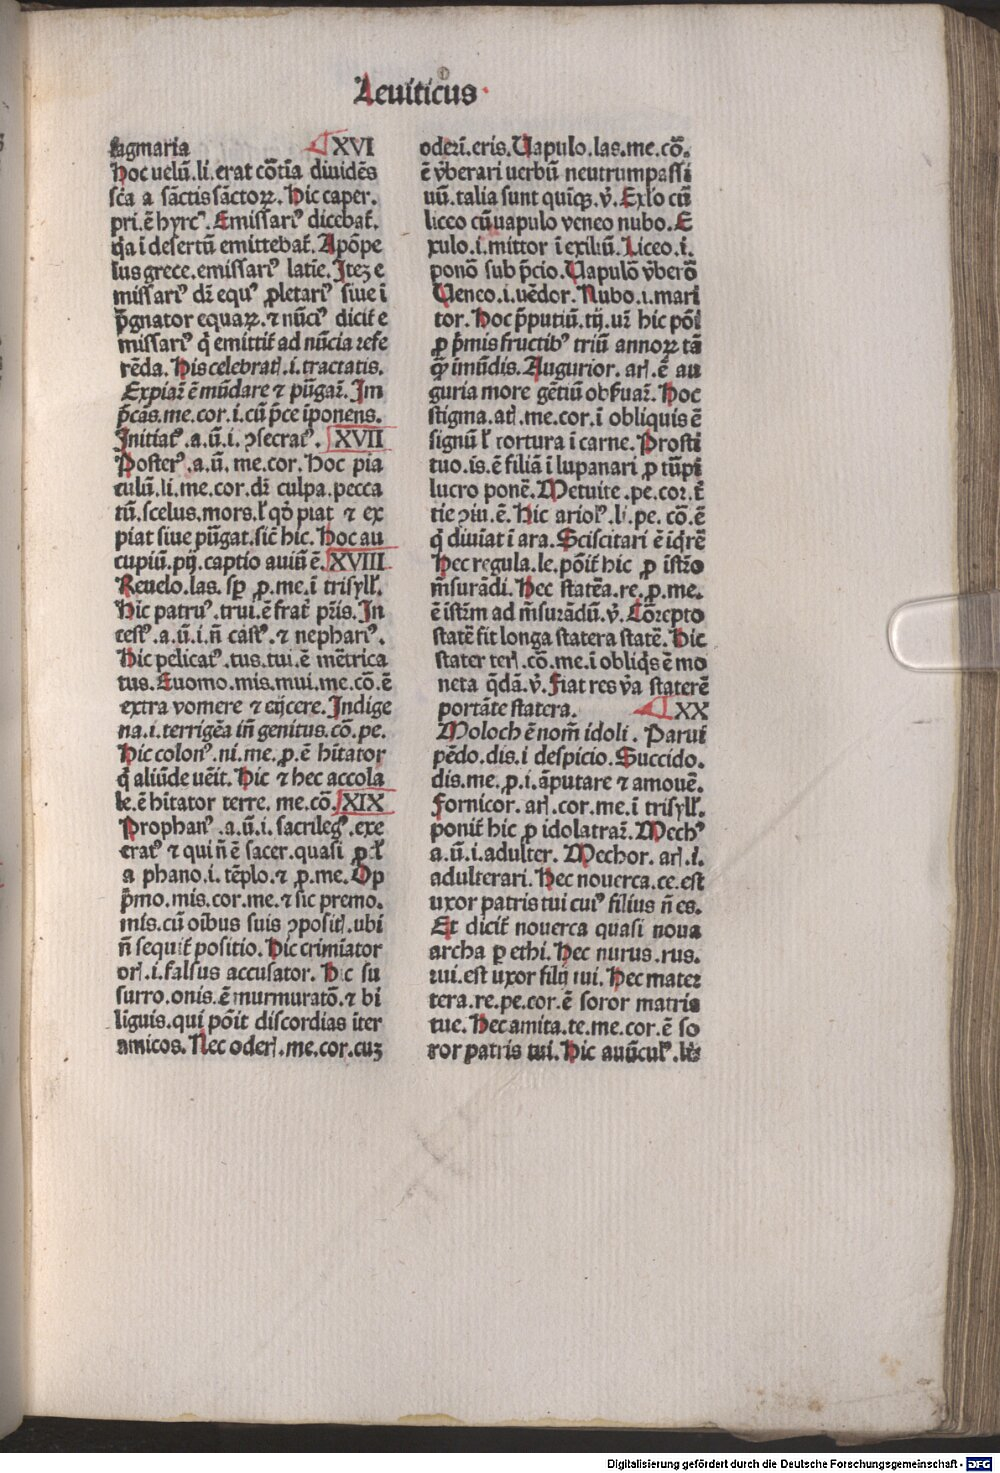 Leuiticus
sagmaria XVI
Hoc uelū.li.erat cōtīa diuidēs
sc̄a a sāctis sāctoꝝ. Hic caper.
pri.ē hyrcꝰ. Emissariꝰ dicebat̄.
q̄a ī desertū emittebat̄. Apōpe
ius grece.emissariꝰ latīe. Iteꝫ e
missariꝰ dr̄ equꝰ ꝓletariꝰ siue ī
p̄gnator equaꝝ.⁊ nūciꝰ dicit̄ e
missariꝰ q̄ emittit̄ ad nūcia refe
rēda. His celebratꝭ.i.tractatis.
Expiar̄ ē mūdare ⁊ pūgar̄. Im
p̄cas.me.cor.i.cū p̄ce īponens.
Initiatꝰ.a.ū.i.ꝯsecratꝰ. XVII
Posterꝰ.a.ū.me.cor. Hoc pia
culū.li.me.cor.dr̄ culpa.pecca
tū.scelus.mors.ł qꝺ̄ piat ⁊ ex
piat siue pūgat.sic̄ hic. Hoc au
cupiū.pij.captio auiū ē. XVIII
Reuelo.las.sꝑ ꝓ.me.ī trisyll̄.
Hic patruꝰ.trui.ē frat̄ pr̄is. In
cestꝰ.a.ū.i.n̄ castꝰ.⁊ nephariꝰ.
Hic pelicatꝰ.tus.tui.ē mētrica
tus. Euomo.mis.mui.me.cō.ē
extra vomere ⁊ eijcere. Indige
na.i.terrigēa in̄ genitus.cō.pe.
Hic colonꝰ.ni.me.ꝓ.ē hītator
q̄ aliūde uēit. Hic ⁊ hec accola
le.ē hītator terre. me.cō. XIX
Prophanꝰ.a.ū.i.sacrilegꝰ.exe
cratꝰ ⁊ qui n̄ ē sacer.quasi ꝓcl̄
a phano.i.tēplo.⁊ ꝓ.me. Op
p̄mo.mis.cor.me.⁊ sic premo.
mis.cū oībus suis ꝯpositꝭ.ubi
n̄ sequit̄ positio. Hic crimīator
orꝭ.i.falsus accusator. Hic su
surro.onis.ē murmuratō.⁊ bi
liguis.qui pōit discordias īter
amicos. Nec oderꝭ.me.cor.cuꝫ
oderī.eris. Uapulo.las.me.cō.
ē v̄berari uerbū neutrum passi
uū.talia sunt quīqꝫ.v̄. Exlo cū
liceo cū uapulo veneo nubo. E
xulo.i.mittor ī exiliū. Liceo.i.
ponō sub p̄cio. Uapulō v̄berō
Ueneo.i.uēdor. Nubo.i.mari
tor. Hoc p̄putiū.tij.ur̄ hic pōi
ꝓ p̄mis fructibꝰ triū annoꝝ tā
qꝫ̄ īmūdis. Augurior.arꝭ.ē au
guria more gētiū obẜuar̄. Hoc
stigma.atꝭ.me.cor.ī obliquis ē
signū ł tortura ī carne. Prosti
tuo.is.ē filiā ī lupanari ꝓ tūpi
lucro ponē. Metuite.pe.cor.t̄
tie ꝯiu.ē. Hic ariolꝰ.li.pe.cō.ē
q̄ diuiat ī ara. Sciscitari ē īq̄rē
Hec regula.le.pōit̄ hic ꝓ īstr̄o
m̄surādi. Hec statēa.re.ꝓ.me.
ē īstr̄m ad m̄surādū.v̄. Cōrepto
statē fit longa statera statē. Hic
stater terꝭ.cō.me.ī obliq̄s ē mo
neta q̄dā.v̄. Fiat res v̄a staterē
portāte statera. XX
Moloch ē nom̄ idoli. Parui
pēdo.dis.i despicio. Succido.
dis.me.ꝓ.i.āputare ⁊ amouē.
Fornicor.arꝭ.cor.me.ī trisyll̄.
ponit̄ hic ꝓ idolatrar̄. Mechꝰ
a.ū.i.adulter. Mechor.arꝭ.i.
adulterari. Hec nouerca.ce.est
uxor patris tui cuiꝰ filius n̄ es.
Et dicit̄ nouerca quasi noua
archa ꝑ ethi. Hec nurus.rus.
rui.est uxor filij tui. Hec mater
tera.re.pe.cor.ē soror matris
tue. Hec amita.te.me.cor.ē so
ror patris tui. Hic auūculꝰ.
Digitalisierung gefördert durch die Deutsche Forschungsgemeinschaft - DFG